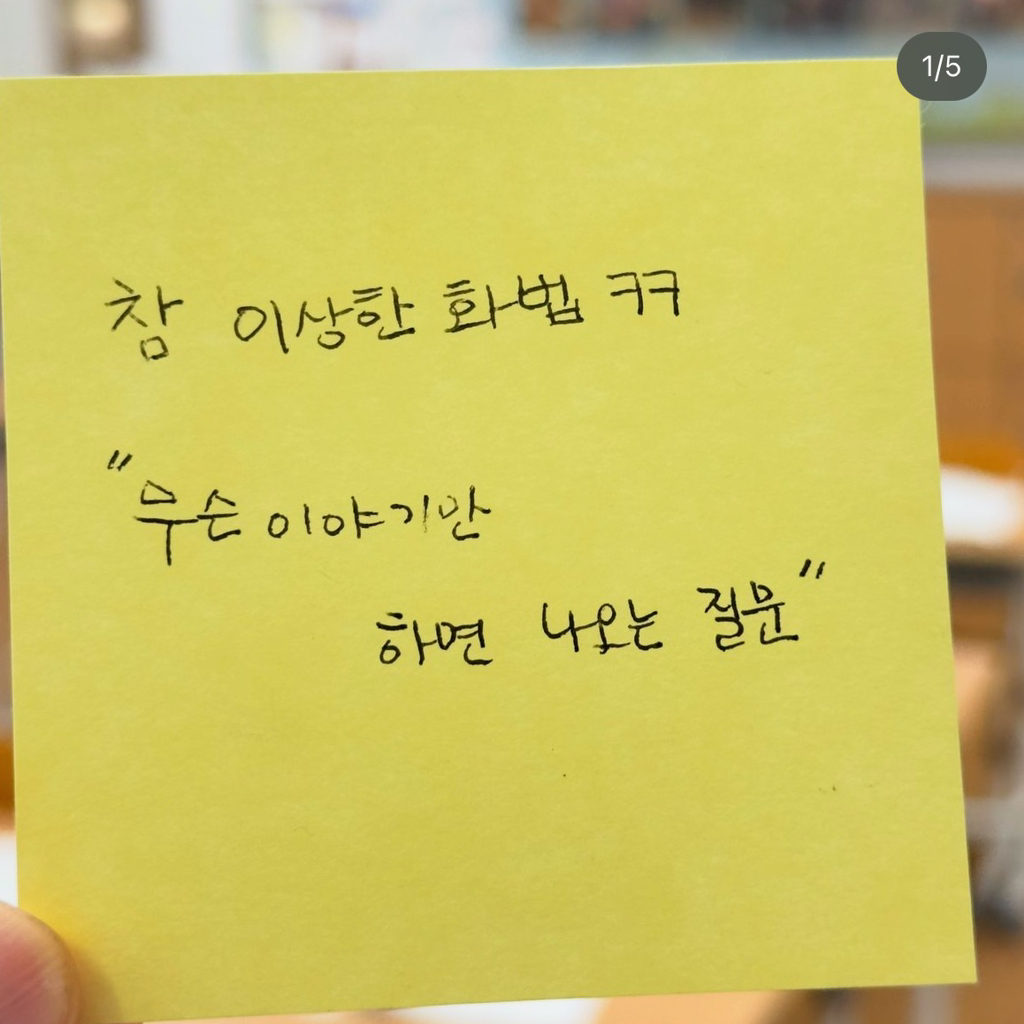 1/5
참 이상한 화법 ㅋㅋ
"무슨 이야기만
하면 나오는 질문"